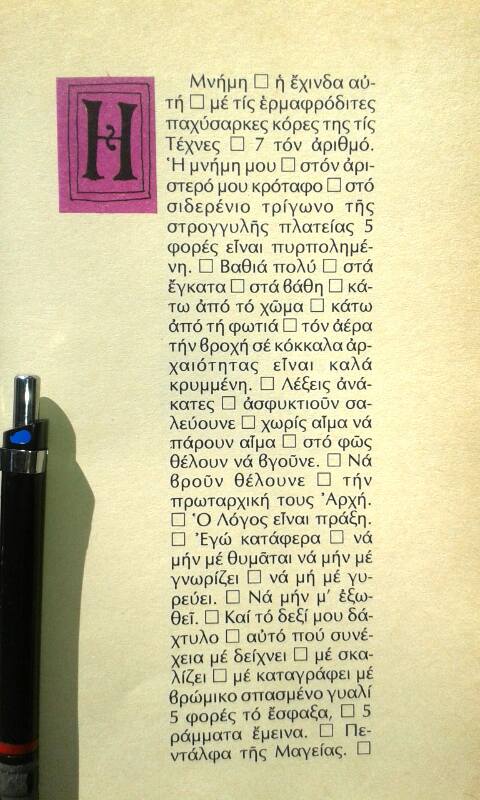 Η
Μνήμη □ ἡ ἔχινδα αὐ-
τή □ μέ τίς ἑρμαφρόδιτες
παχύσαρκες κόρες της τίς
Τέχνες □ 7 τόν ἀριθμό.
Ἡ μνήμη μου □ στόν ἀρι-
στερό μου κρόταφο □ στό
σιδερένιο τρίγωνο τῆς
στρογγυλῆς πλατείας 5
φορές εἶναι πυρπολημέ-
νη. □ Βαθιά πολύ □ στά
ἔγκατα □ στά βάθη □ κά-
τω ἀπό τό χῶμα □ κάτω
ἀπό τή φωτιά □ τόν ἀέρα
τήν βροχή σέ κόκκαλα ἀρ-
χαιότητας εἶναι καλά
κρυμμένη. □ Λέξεις ἀνά-
κατες □ ἀσφυκτιοῦν σα-
λεύουνε □ χωρίς αἷμα νά
πάρουν αἷμα □ στό φῶς
θέλουν νά βγοῦνε. □ Νά
βροῦν θέλουνε □ τήν
πρωταρχική τους Ἀρχή.
□ Ὁ Λόγος εἶναι πράξη.
□ Ἐγώ κατάφερα □ νά
μήν μέ θυμᾶται νά μήν μέ
γνωρίζει □ νά μή μέ γυ-
ρεύει. □ Νά μήν μ' ἐξω-
θεῖ. □ Καί τό δεξί μου δά-
χτυλο □ αὐτό πού συνέ-
χεια μέ δείχνει □ μέ σκα-
λίζει □ μέ καταγράφει μέ
βρώμικο σπασμένο γυαλί
5 φορές τό ἔσφαξα, □ 5
ράμματα ἔμεινα. □ Πε-
ντάλφα τῆς Μαγείας. □